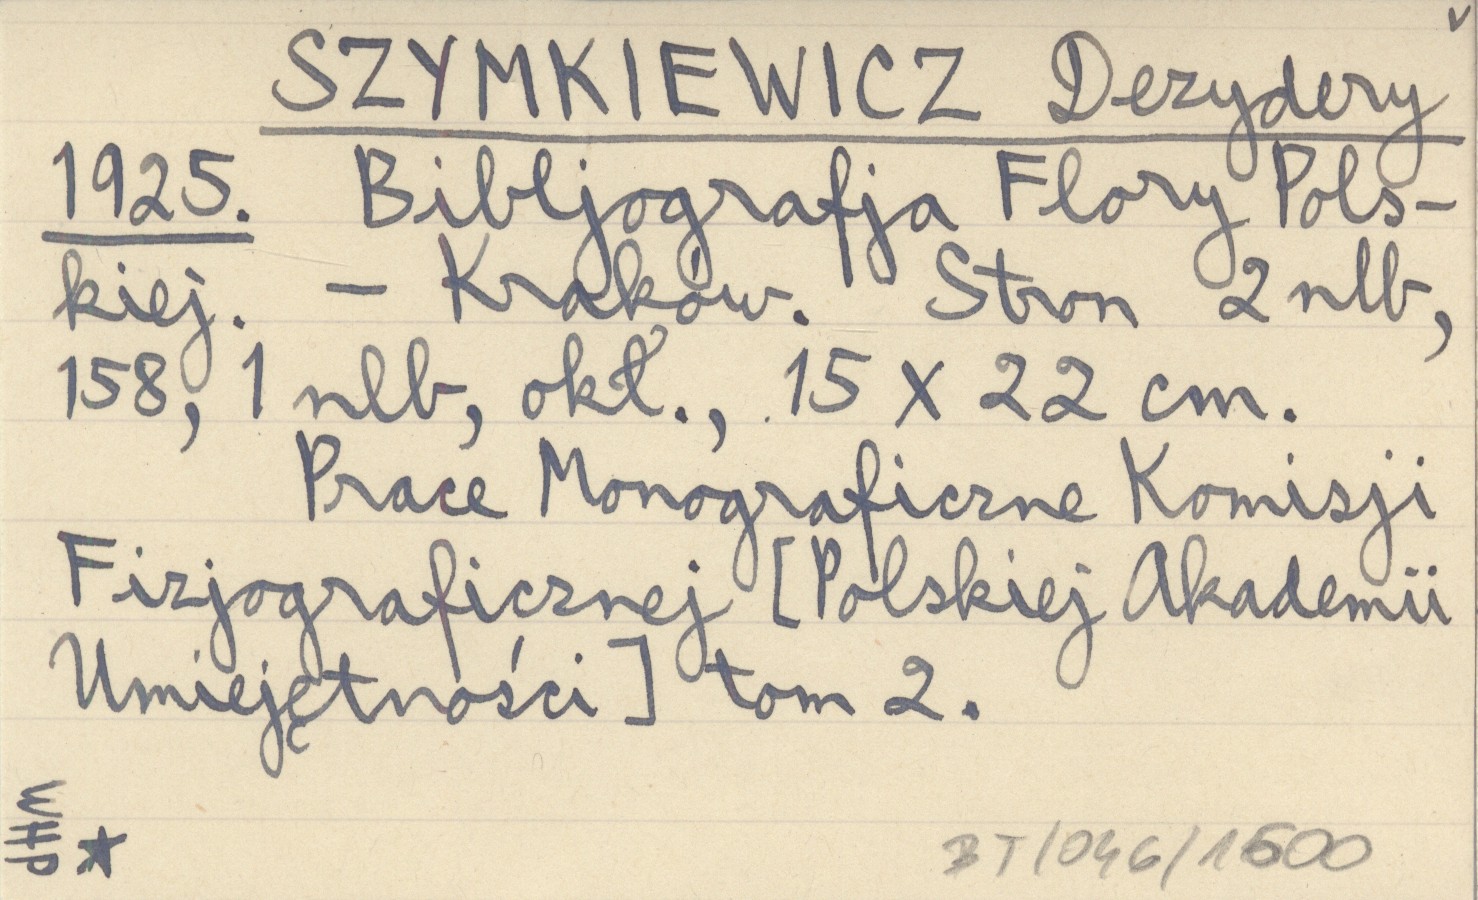 v
SZYMKIEWICZ Dezydery
1925. Bibljografja Flory Pols-
kiej. – Kraków. Stron 2 nlb,
158, 1 nlb, okł., 15 X 22 cm.
Prace Monograficzne Komisji
Fizjograficznej [Polskiej Akademii
Umiejętności] tom 2.
WHP ★
BT/046/1500